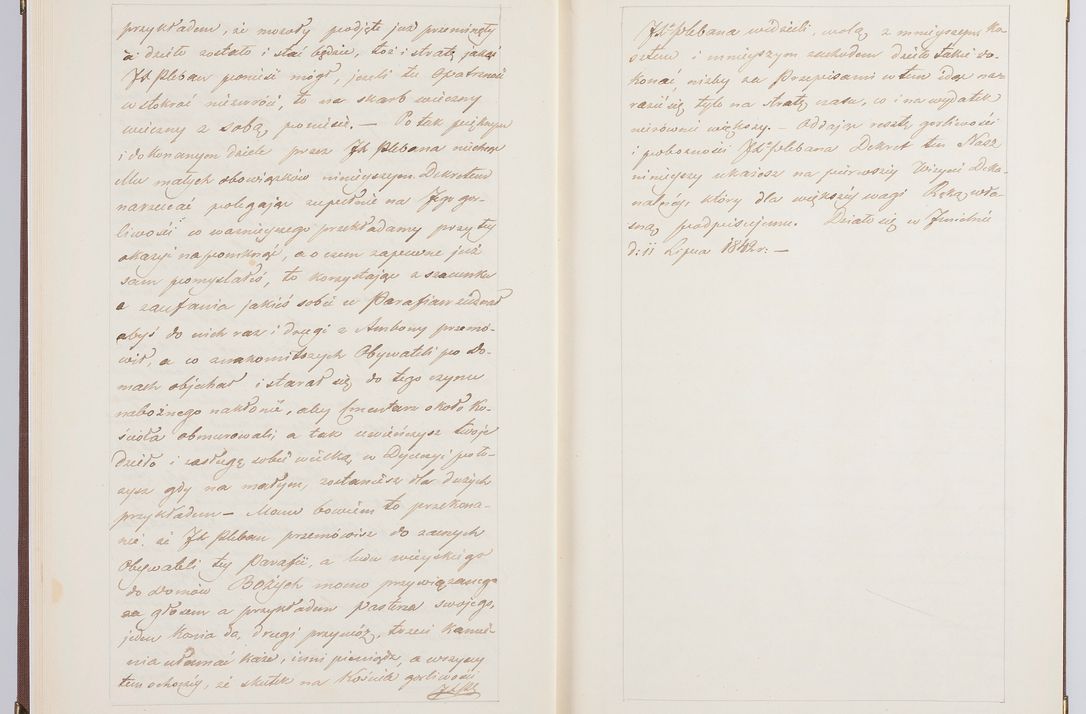 przykładem, że mozoły podjęte już przeminęły
a dzieło zostało i stać będzie, toż i stratę jaką
JX Pleban ponieść mógł, jeżeli tu Opatrzność
w stokroć niezwróci, to na skarb wieczny
wieczny z sobą poniesie. — Po tak pięknym
i dokonanym dziele przez JX Plebana niechcę
Mu małych obowiązków niniejszym Dekretem
narzucać polegając zupełnie na Jego gor-
liwości w ważniejszego przekładamy przy tej
okazyi napomknąć, a o czem zapewne już
sam pomyślałeś, to korzystając z szacunku
a zaufania jakieś sobie w Parafianach
abyś do nich raz i drugi z Ambony przemó-
wił, a co znakomitszych Obywateli po do-
mach objechał i starał się do tego czynu
nabożnego nakłonić, aby Cmentarz około Ko-
ścioła obmurowali; a tak uwieńczysz twoje
dzieło i zasługę sobie wielką w Dyecezyi poło-
żysz gdy na małym, zostaniesz dla dużych
przykładem — Mamy bowiem to przekona-
nie że JX Pleban przemówisz do zacnych
Obywateli tej Parafii, a ludu wieyskiego
do domów BOŻych mocno przywiązanego
za głosem a przykładem Pasterza swojego,
jeden Konia da, drugi przywóz, trzeci Kamie-
nia ułamać każe, inni pieniądze, a wszyscy
tem ochoczy, że skutek na Kościele gorliwości
JX Plebana widzieli, wolą z mniejszym Ko-
sztem i mniejszym zachodem dzieło takie do-
konać, niżby za Przepisami w tem idąc na-
razić się tyle na stratę czasu, co i na wydatek
nierównie większy. — Oddając resztę gorliwości
i pobożności JX Plebana Dekret ten Nasz
niniejszy ukażesz na pierwszej Wizyci Dzieka-
nalnej, który dla większej wagi Ręką wła-
sną podpisujemy. Działo się w Jmielnie
d: 11 Lipca 1842 r: —